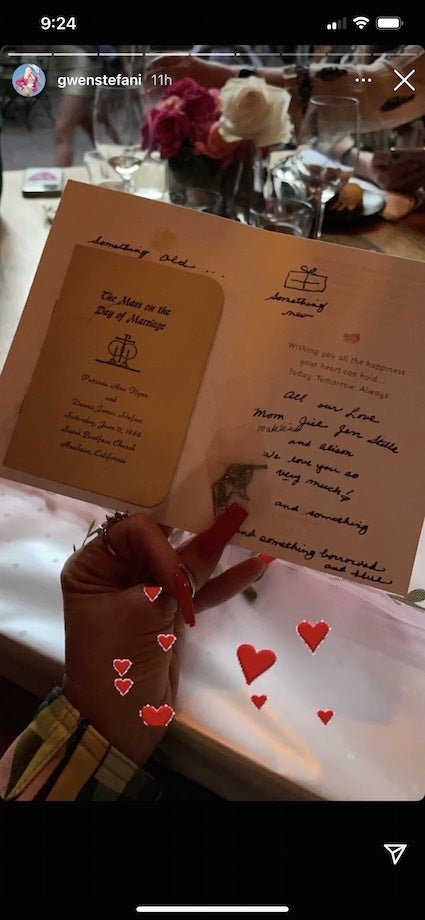 9:24
gwenstefani 11h
Something old ...
The Mass on the
Day of Marriage
Patricia Ann Flynn
and
Dennis James Stefani
Saturday, June 11, 1966
Saint Boniface Church
Anaheim, California
Something
new
Wishing you all the happiness
your heart can hold...
Today. Tomorrow. Always.
All our Love
Mom Jill Jen Stella
Madeline
and Alison
We love you so
very much!
and something
and something borrowed
and blue